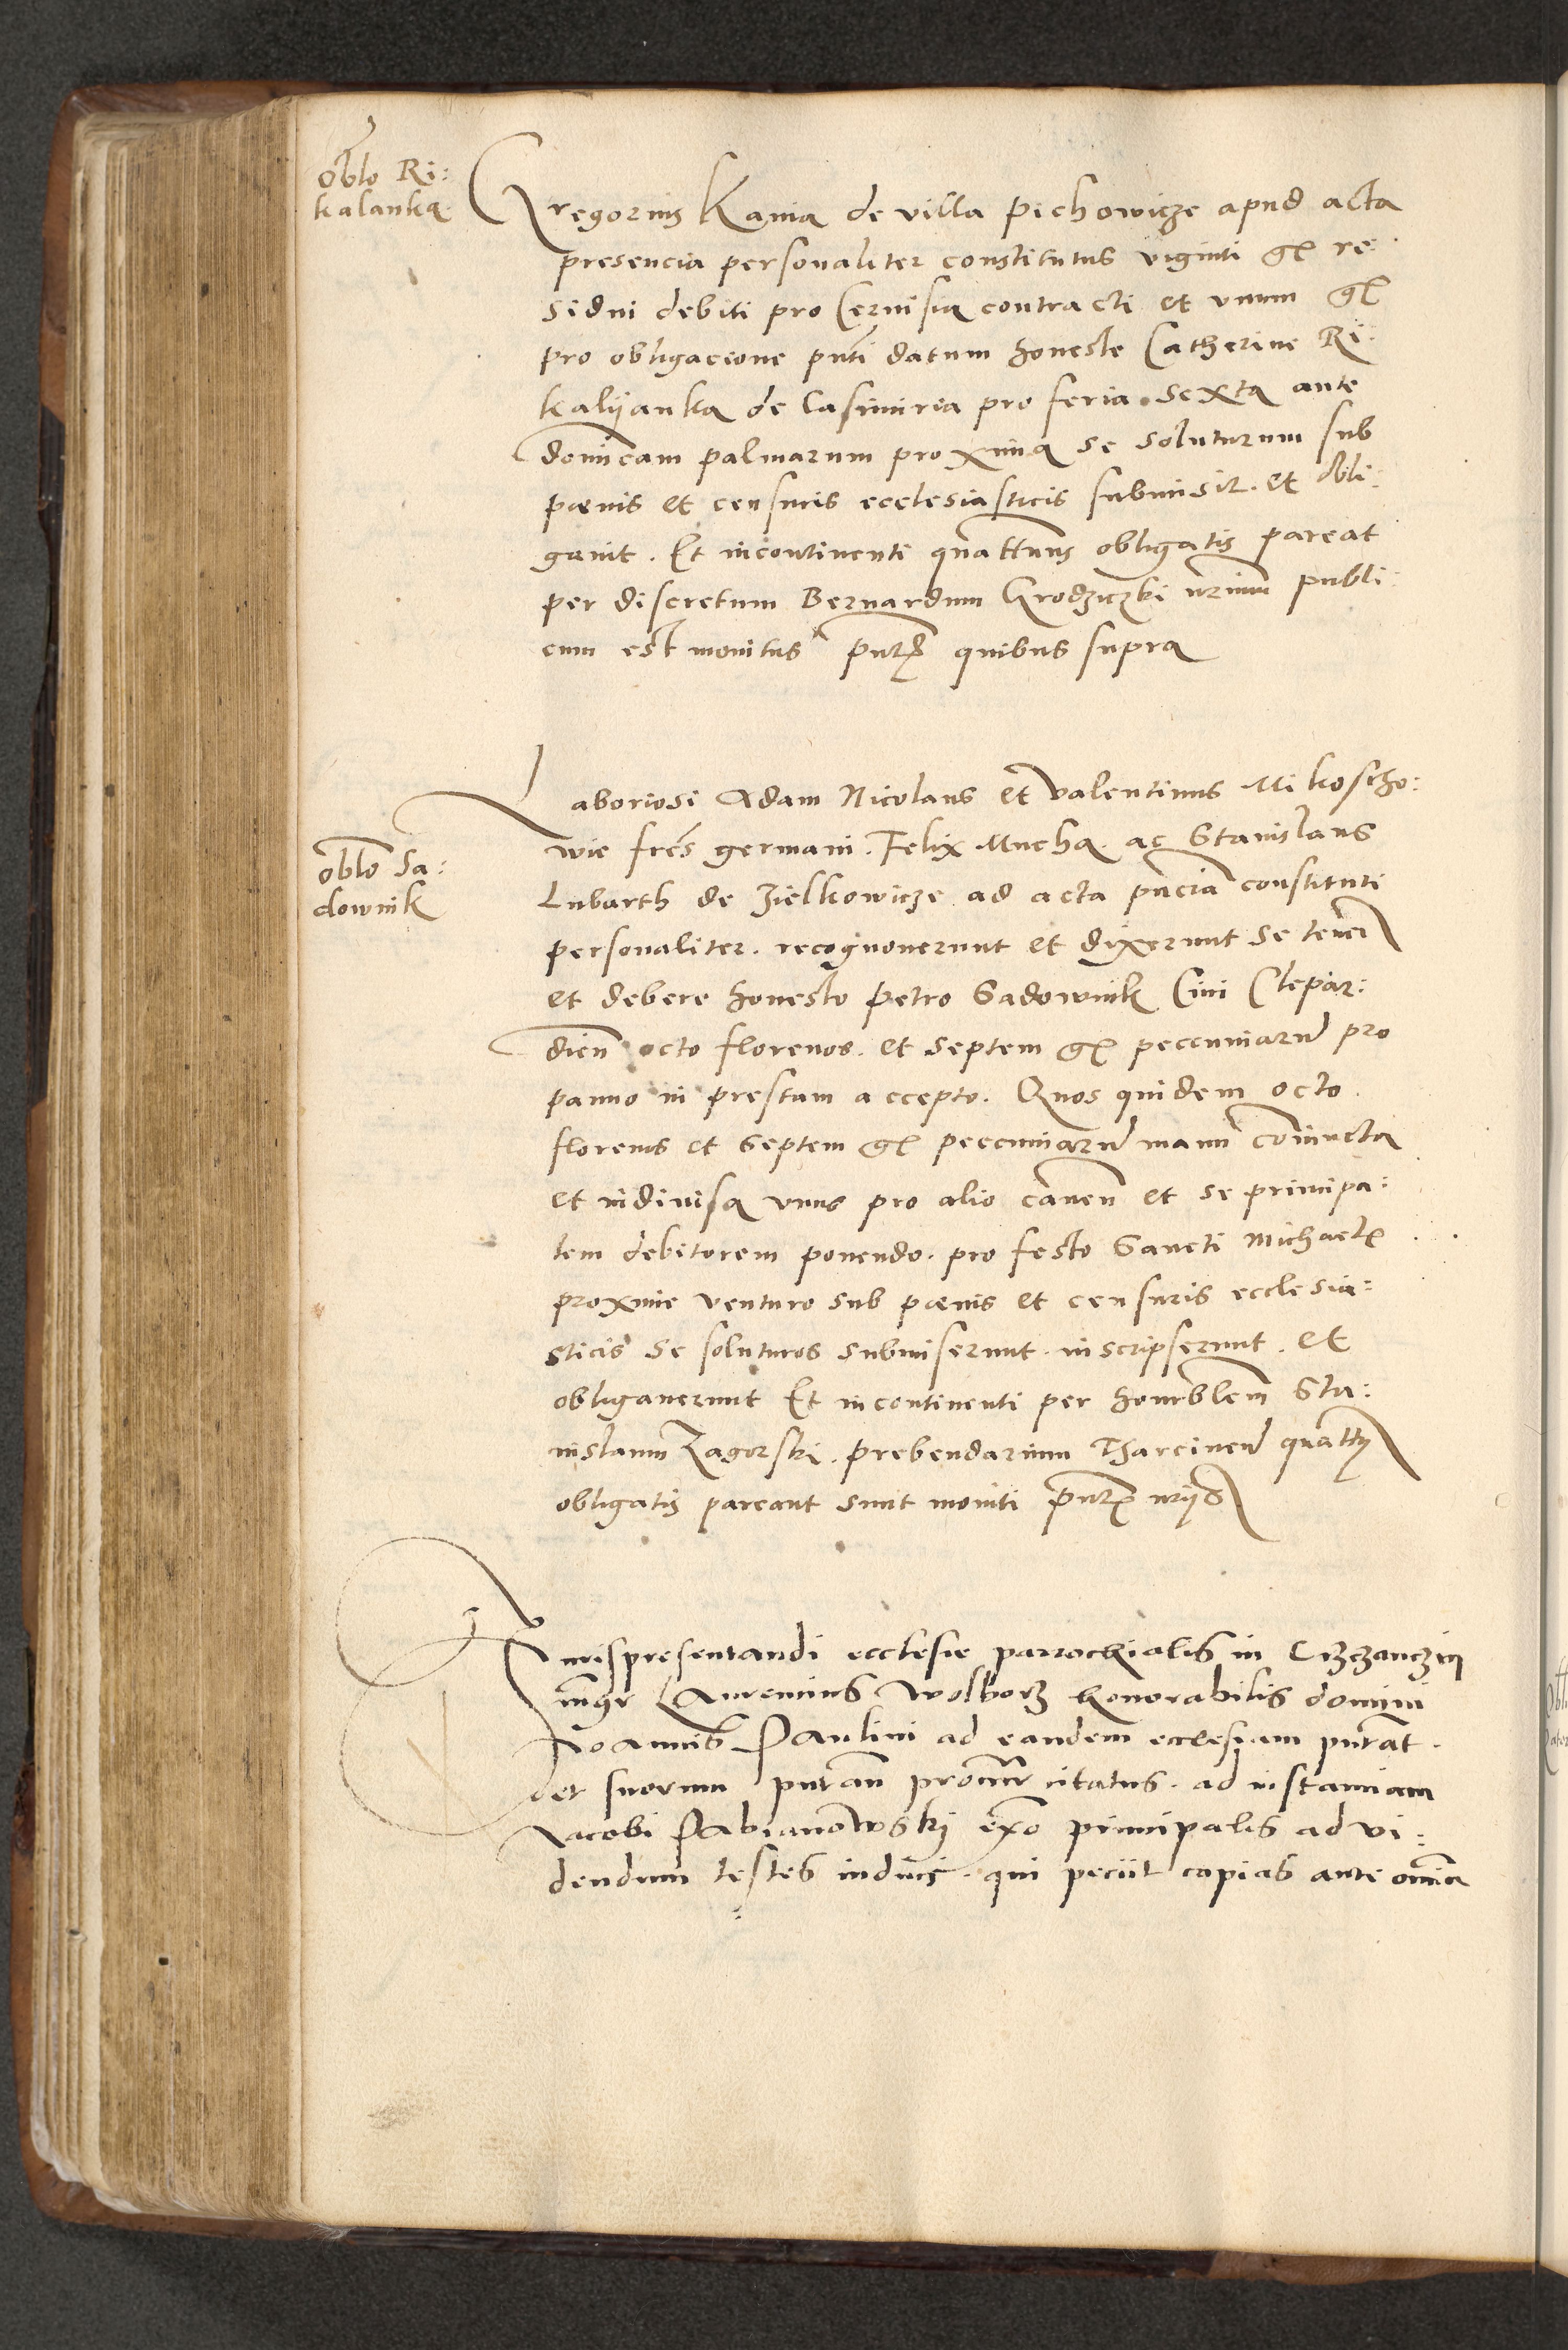 Oblo Ri:
kalanka
Gregorius Kania de villa Pichowicze apud acta
presencia personaliter constitutus viginti gr re:
sidui debiti pro Cervisia contracti et unum gr
pro obligacione pnti datum honeste Catherine Ri:
kalijanka de Casimiria pro feria sexta ante
dominicam palmarum proxima se soluturum sub
penis et censuris ecclesiasticis submisit et Obli:
gavit. Et incontinenti quattenus obligatis pareat
per discretum Bernardum Grodziczki nrium publi:
cum est monitus pntibus quibus supra
oblo Sa:
downik
Laboriosi Adam Nicolaus et Valentinus Mikoscho:
wie fres germani. Felix Mucha ac Stanislaus
Lubarth de Zielkowicze ad acta pncia constituti
personaliter. recognoverunt et dixerunt se teneri
et debere honesto Petro Sadownik Civi Clepar:
dien octo florenos. et septem gr peccuniarum pro
panno in prestum accepto. Quos quidem octo
florenos et septem gr peccuniarum manu coniuncta
et indivisa unus pro alio caven et se principa:
lem debitorem ponendo. pro festo Sancti Michaelis
proxime venturo sub penis et censuris ecclesia:
sticis se soluturos submiserunt. inscripserunt. et
obligaverunt Et incontinenti per honorblem Sta:
nislaum Zagorski. prebendarium Tharcinen quattens
obligatis pareant sunt moniti pntibus
Iurispresentandi ecclesie parrochialis in
mgr Laurencius Wolborz honorabilis domini
Ioannis Paulini ad eandem ecclesiam pntat.
et suorum pntan procur citatus. ad instanciam
Iacobi Pabianowski exo principalis ad vi:
dendum testes induci. qui peciit copias ante omnia